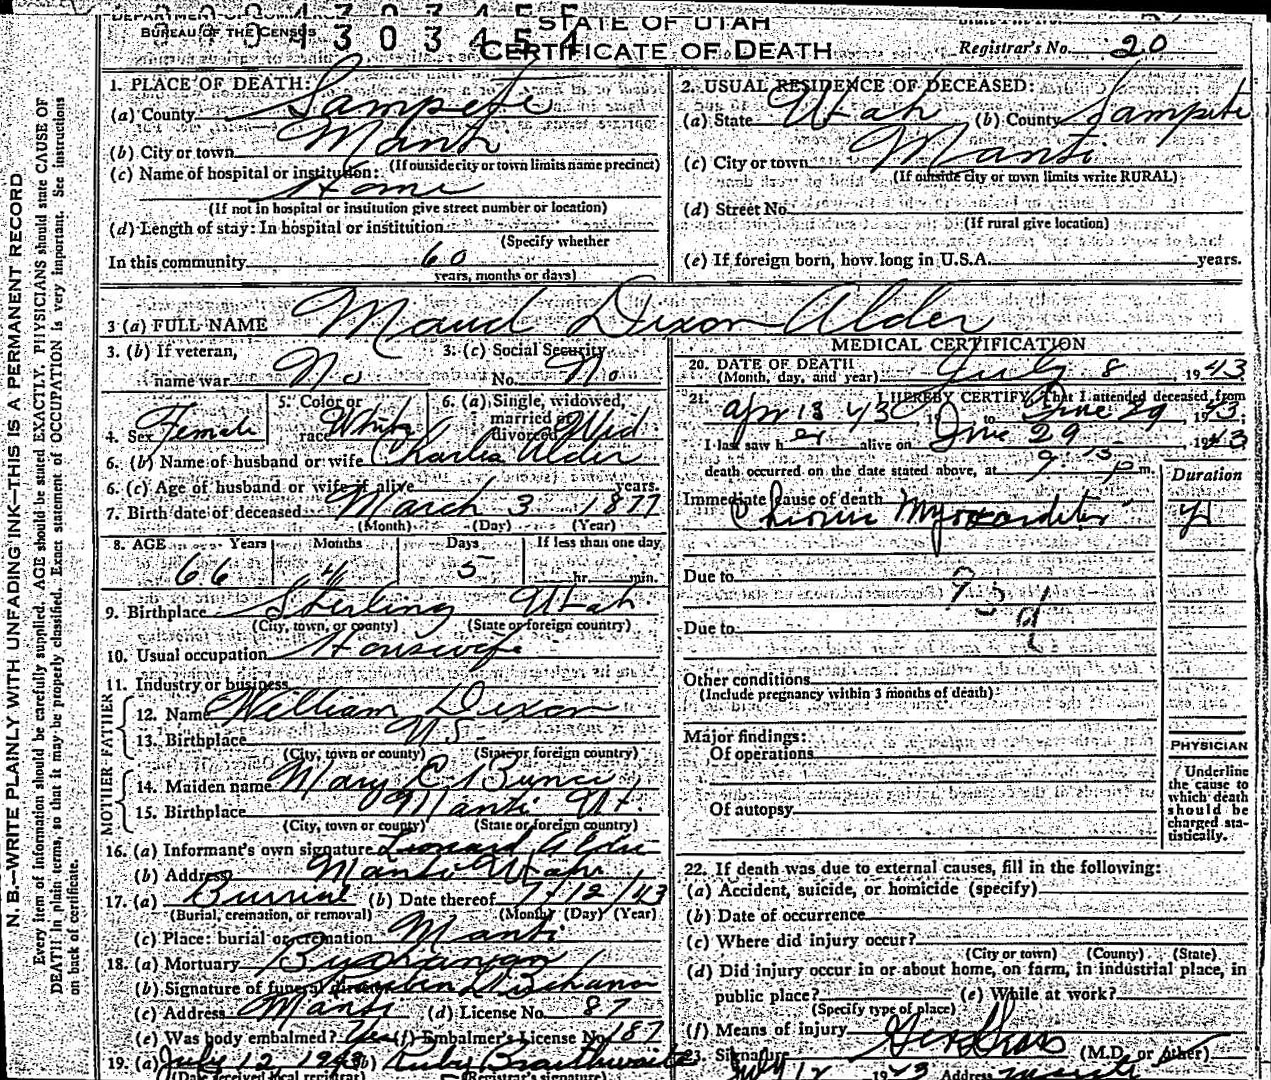 DEPARTMENT OF COMMERCE
BUREAU OF THE CENSUS
STATE OF UTAH
CERTIFICATE OF DEATH
Registrar's No. 20
1. PLACE OF DEATH:
(a) County Sanpete
(b) City or town Manti
(If outside city or town limits name precinct)
(c) Name of hospital or institution:
Home
(If not in hospital or institution give street number or location)
(d) Length of stay: In hospital or institution
(Specify whether
In this community 60
years, months or days)
2. USUAL RESIDENCE OF DECEASED:
(a) State Utah (b) County Sanpete
(c) City or town Manti
(If outside city or town limits write RURAL)
(d) Street No.
(If rural give location)
(e) If foreign born, how long in U.S.A. years.
3 (a) FULL NAME Maud Dixon Alder
3. (b) If veteran, name war No
3. (c) Social Security No. No
4. Sex Female
5. Color or race White
6. (a) Single, widowed, married or divorced Wid
6. (b) Name of husband or wife Charlie Alder
6. (c) Age of husband or wife if alive years.
7. Birth date of deceased March 3 1877
(Month) (Day) (Year)
8. AGE Years Months Days If less than one day
66 4 5 hr. min.
9. Birthplace Sterling Utah
(City, town, or county) (State or foreign country)
10. Usual occupation Housewife
11. Industry or business
FATHER
12. Name William Dixon
13. Birthplace U.S.
(City, town or county) (State or foreign country)
MOTHER
14. Maiden name Mary E. Bunce
15. Birthplace Manti Ut.
(City, town or county) (State or foreign country)
16. (a) Informant's own signature Leonard Alder
(b) Address Manti Utah
17. (a) Burrial (b) Date thereof 7/12/43
(Burial, cremation, or removal) (Month) (Day) (Year)
(c) Place: burial or cremation Manti
18. (a) Mortuary Buchanan
(b) Signature of funeral director
(c) Address Manti (d) License No. 87
(e) Was body embalmed? Yes (f) Embalmer's License No. 187
19. (a) July 12 1943 (b) Ruby Braithwaite
(Date received local registrar) (Registrar's signature)
MEDICAL CERTIFICATION
20. DATE OF DEATH
(Month, day, and year) July 8, 1943
21. I HEREBY CERTIFY, That I attended deceased from
Apr 18 43, 19 to June 29, 1943
I last saw her alive on June 29 1943
death occurred on the date stated above, at 9:15 p m.
Duration
Immediate cause of death
Chronic Myocarditis
Due to
93d
Due to
Other conditions
(Include pregnancy within 3 months of death)
Major findings:
Of operations
Of autopsy
PHYSICIAN
Underline
the cause to
which death
should be
charged sta-
tistically.
22. If death was due to external causes, fill in the following:
(a) Accident, suicide, or homicide (specify)
(b) Date of occurrence
(c) Where did injury occur?
(City or town) (County) (State)
(d) Did injury occur in or about home, on farm, in industrial place, in
public place? (e) While at work?
(Specify type of place)
(f) Means of injury
23. Signature (M.D. or other)
July 12 1943 Address Manti
N. B.—WRITE PLAINLY WITH UNFADING INK—THIS IS A PERMANENT RECORD
Every item of information should be carefully supplied. AGE should be stated EXACTLY. PHYSICIANS should state CAUSE OF
DEATH in plain terms, so that it may be properly classified. Exact statement of OCCUPATION is very important. See instructions
on back of certificate.